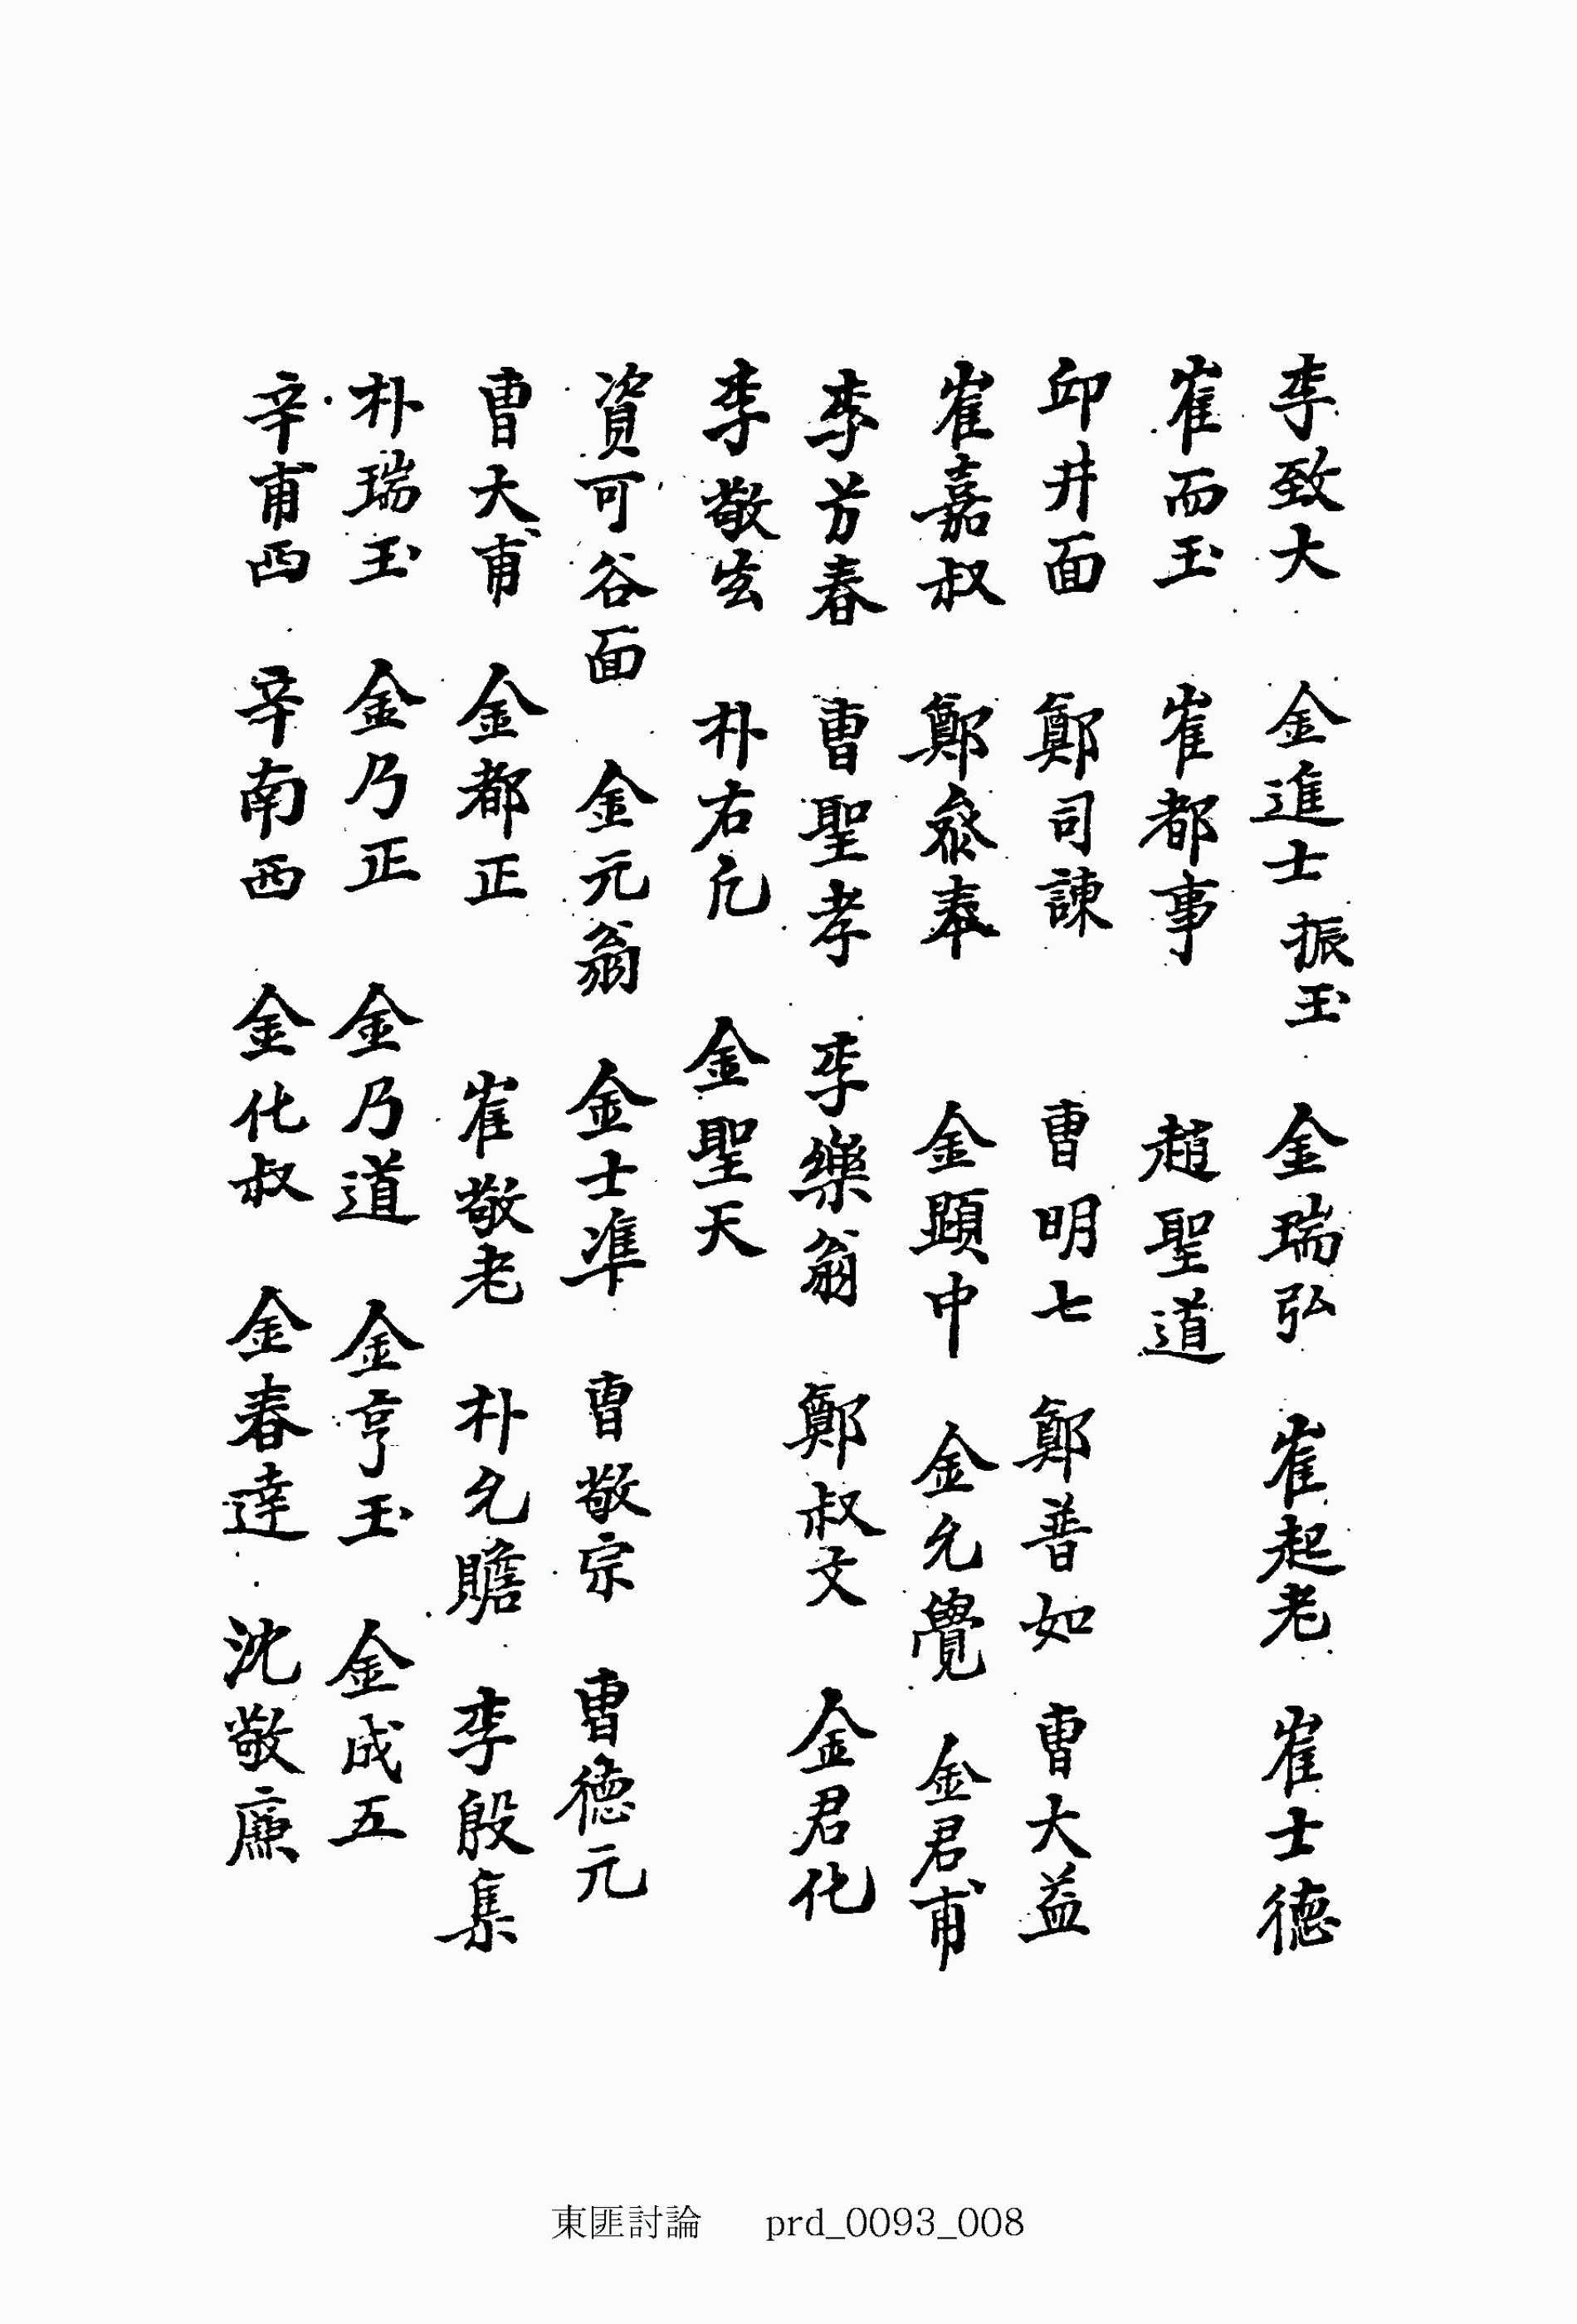 李致大 金進士 振玉 金瑞弘 崔起老 崔士德
崔而玉 崔都事 趙聖道
邱井面 鄭司諫 曺明七 鄭普如 曺大益
崔嘉叔 鄭叅奉 金顯中 金允覺 金君甫
李芳春 曺聖孝 李樂翁 鄭叔文 金君化
李敬玄 朴右凡 金聖天
資可谷面 金元翁 金士準 曺敬宗 曺德元
曺大甫 金都正 崔敬老 朴允瞻 李殷集
朴瑞玉 金乃正 金乃道 金亨玉 金成五
辛甫西 辛南西 金化叔 金春達 沈敬廉
東匪討論 prd_0093_008